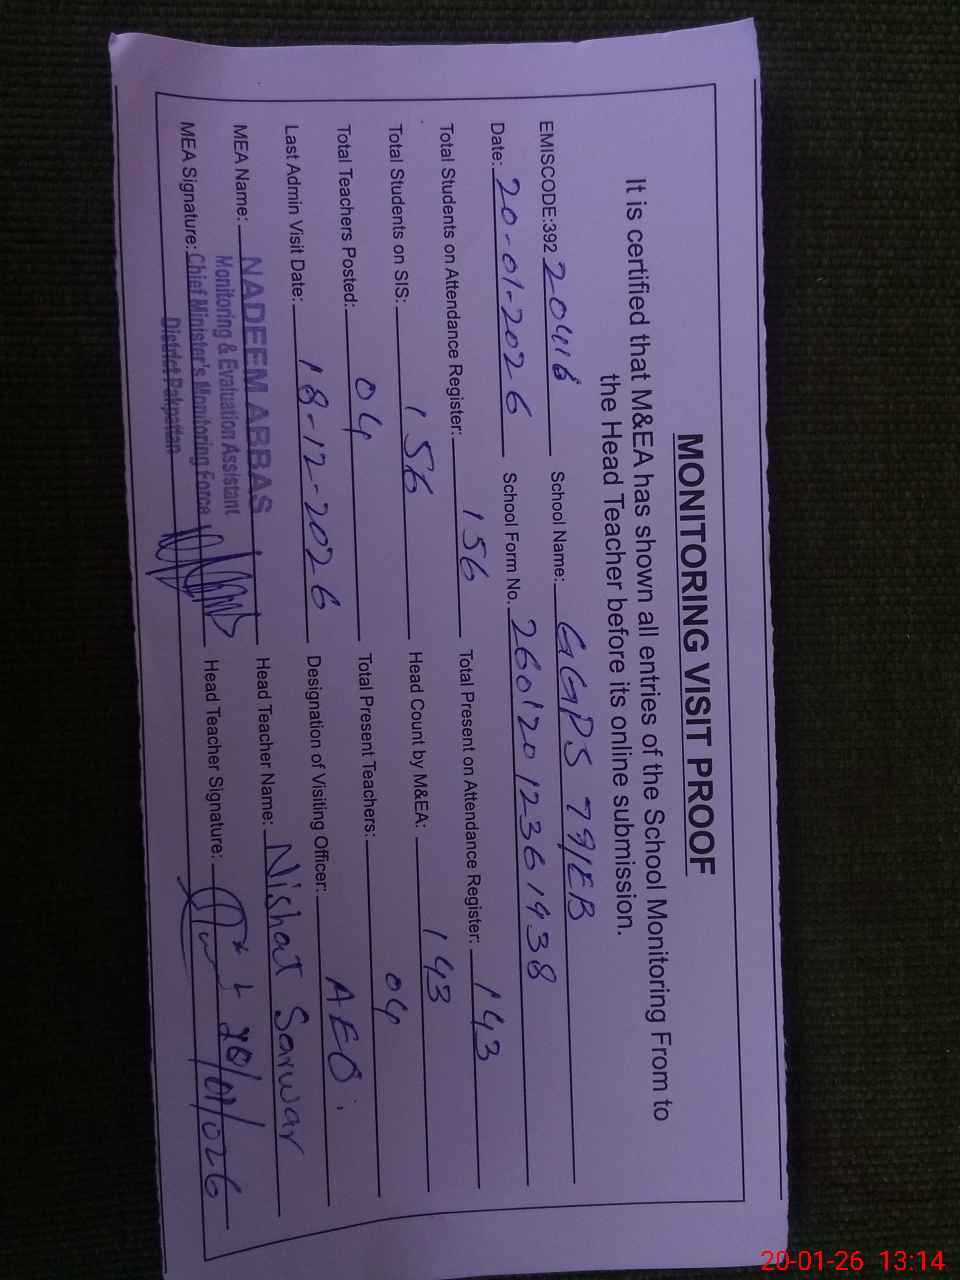 MONITORING VISIT PROOF
It is certified that M&EA has shown all entries of the School Monitoring From to
the Head Teacher before its online submission.
EMISCODE:392 20416 School Name: GGPS 79/EB
Date: 20-01-2026 School Form No. 26012012361938
Total Students on Attendance Register: 156 Total Present on Attendance Register: 143
Total Students on SIS: 156 Head Count by M&EA: 143
Total Teachers Posted: 04 Total Present Teachers: 04
Last Admin Visit Date: 18-12-2026 Designation of Visiting Officer: AEO
MEA Name: NADEEM ABBAS Head Teacher Name: Nishat Sarwar
Monitoring & Evaluation Assistant
MEA Signature: Chief Minister's Monitoring Force Head Teacher Signature: 20/01/026
District Pakpattan
20-01-26 13:14